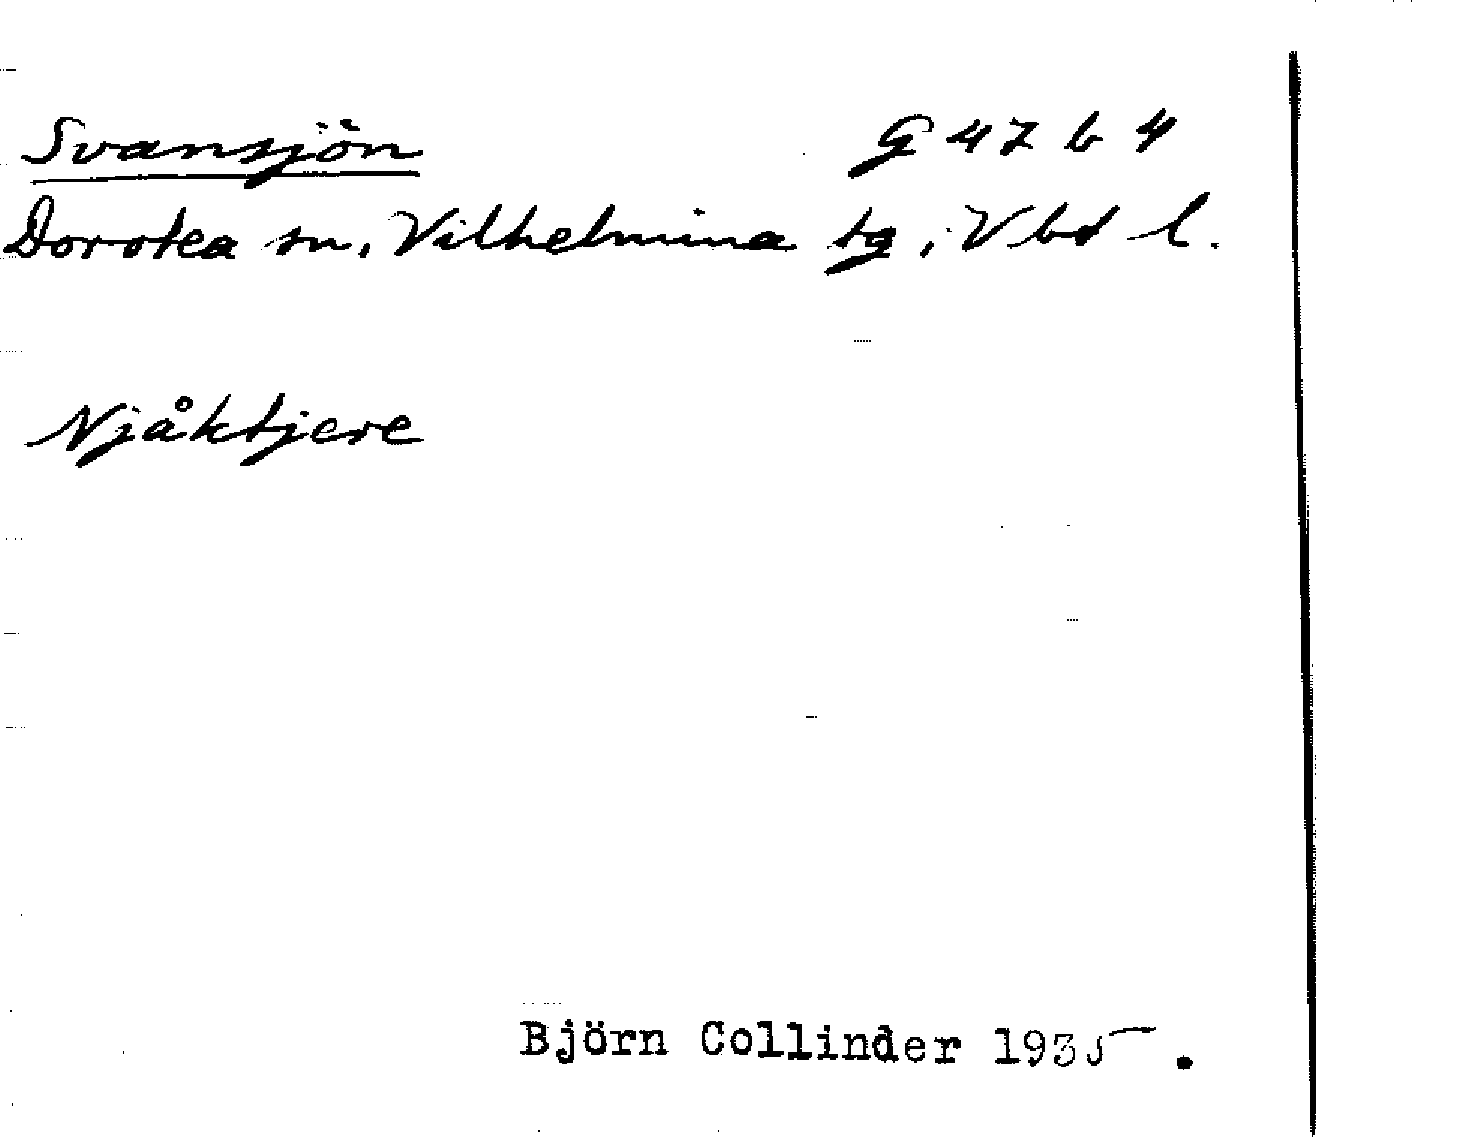 Svansjön G 47 b 4
Dorotea sn, Vilhelmina tg, Vbd l.
Njåktjere
Björn Collinder 1935.